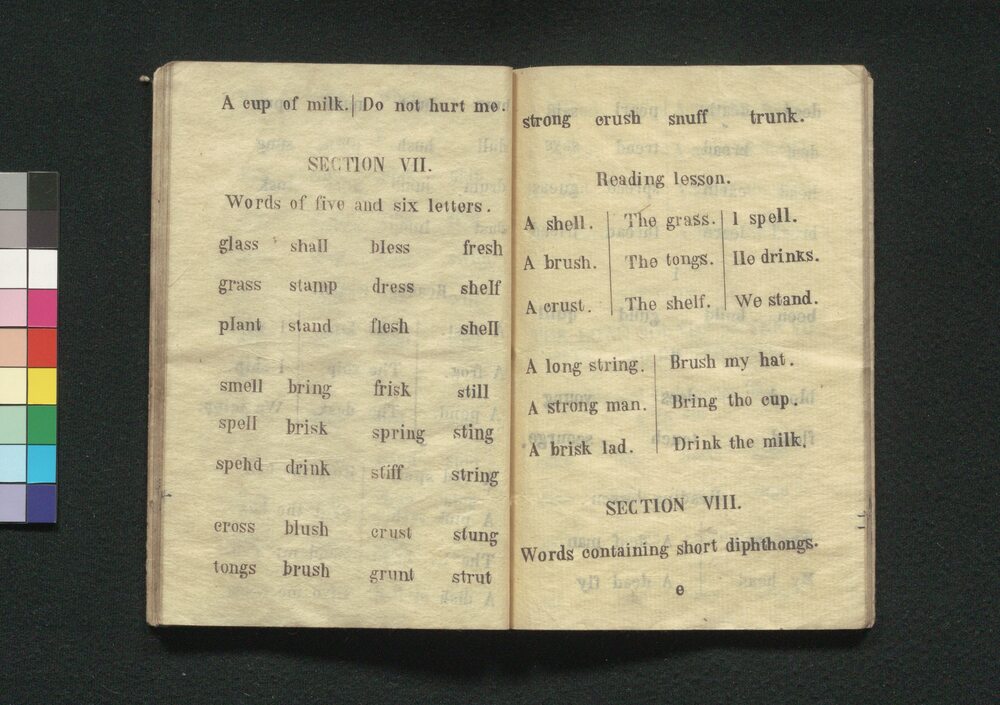 A cup of milk. | Do not hurt me.
SECTION VII.
Words of five and six letters.
glass shall bless fresh
grass stamp dress shelf
plant stand flesh shell
smell bring frisk still
spell brisk spring sting
spehd drink stiff string
cross blush crust stung
tongs brush grunt strut
strong crush snuff trunk.
Reading lesson.
A shell. | The grass. | I spell.
A brush. | The tongs. | He drinks.
A crust. | The shelf. | We stand.
A long string. | Brush my hat.
A strong man. | Bring the cup.
A brisk lad. | Drink the milk.
SECTION VIII.
Words containing short diphthongs.
e